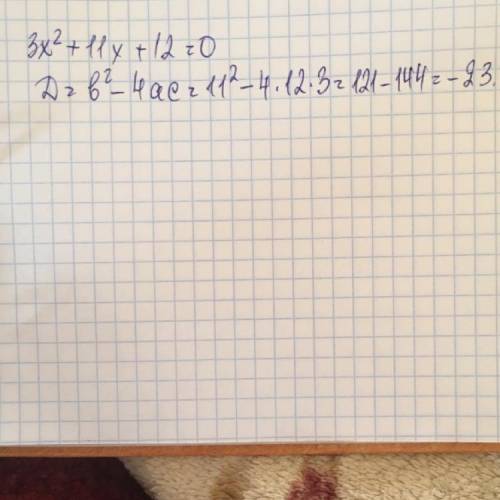 3x² + 11x + 12 = 0
D = b² - 4ac = 11² - 4 · 12 · 3 = 121 - 144 = -23.